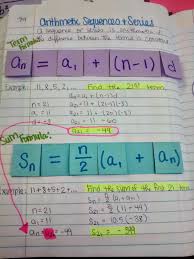 Arithmetic Sequences & Series
A sequence or series is arithmetic if
difference between the terms is constant
Term Formula:
an = a1 + (n-1) d
Example: 11, 8, 5, 2, ... Find the 21st term.
an = a1 + (n-1)d
n = 21
a21 = 11 + (21-1)(-3)
a1 = 11
a21 = 11 + (20)(-3)
d = -3
a21 = 11 - 60
a21 = -49
Sum Formula:
Sn = n/2 (a1 + an)
Example: 11+8+5+2+... Find the sum of the first 21 terms.
Sn = n/2 (a1 + an)
n = 21
S21 = 21/2 (11 + -49)
a1 = 11
S21 = 10.5 (-38)
an = a21 = -49
S21 = -399